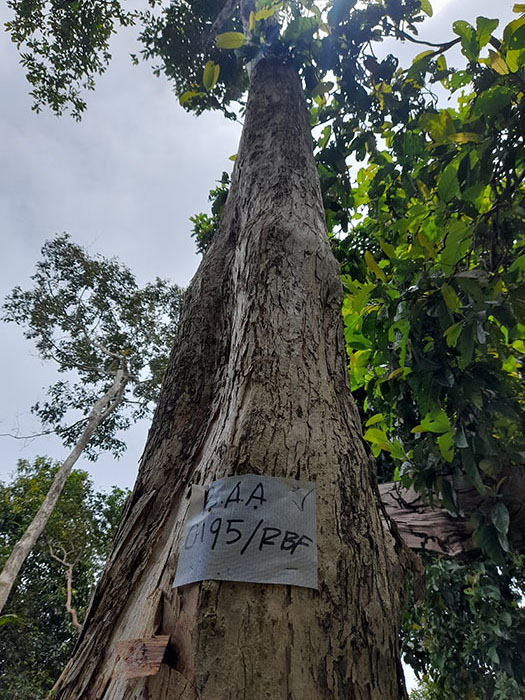 LAA
0195/RBF